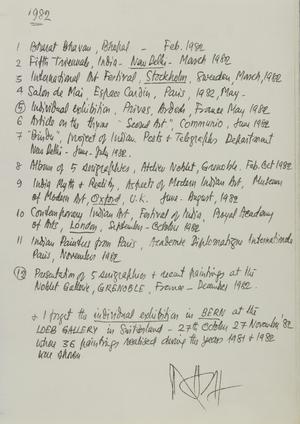 1982
1 Bharat Bhavan, Bhopal - Feb. 1982
2 Fifth Triennale, India - New Delhi - March 1982
3 International Art Festival, Stockholm, Sweden, March, 1982
4 Salon de Mai, Espace Cardin, Paris, 1982, May -
5 Individual exhibition, Privas, Ardech, France May 1982
6 Article on the theme "Second Art", Communio, June 1982
7 "Bindu", project of Indian Posts & Telegraphs Department
New Delhi - June - July 1982.
8 Album of 5 serigraphies, Atelier Noblet, Grenoble, Feb. Oct 1982
9 India Myth & Reality, Aspects of Modern Indian Art, Museum
of Modern Art, Oxford, U.K. June - August, 1982
10 Contemporary Indian Art, Festival of India, Royal Academy
of Arts, London, September - October 1982
11 Indian Painters from Paris, Academie Diplomatique Internationale
Paris, November 1982
12 Presentation of 5 serigraphies & recent paintings at the
Noblet Galerie, GRENOBLE, France - December 1982.
+ I forget the individual exhibition in BERN at the
LOEB GALLERY in Switzerland - 27th October 27 November '82
where 36 paintings realised during the years 1981 & 1982
were shown